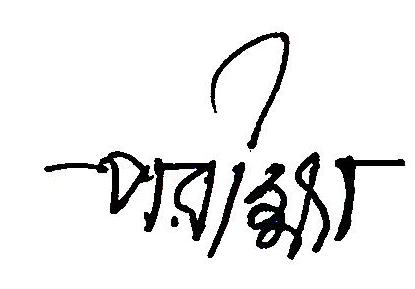 পরীক্ষা